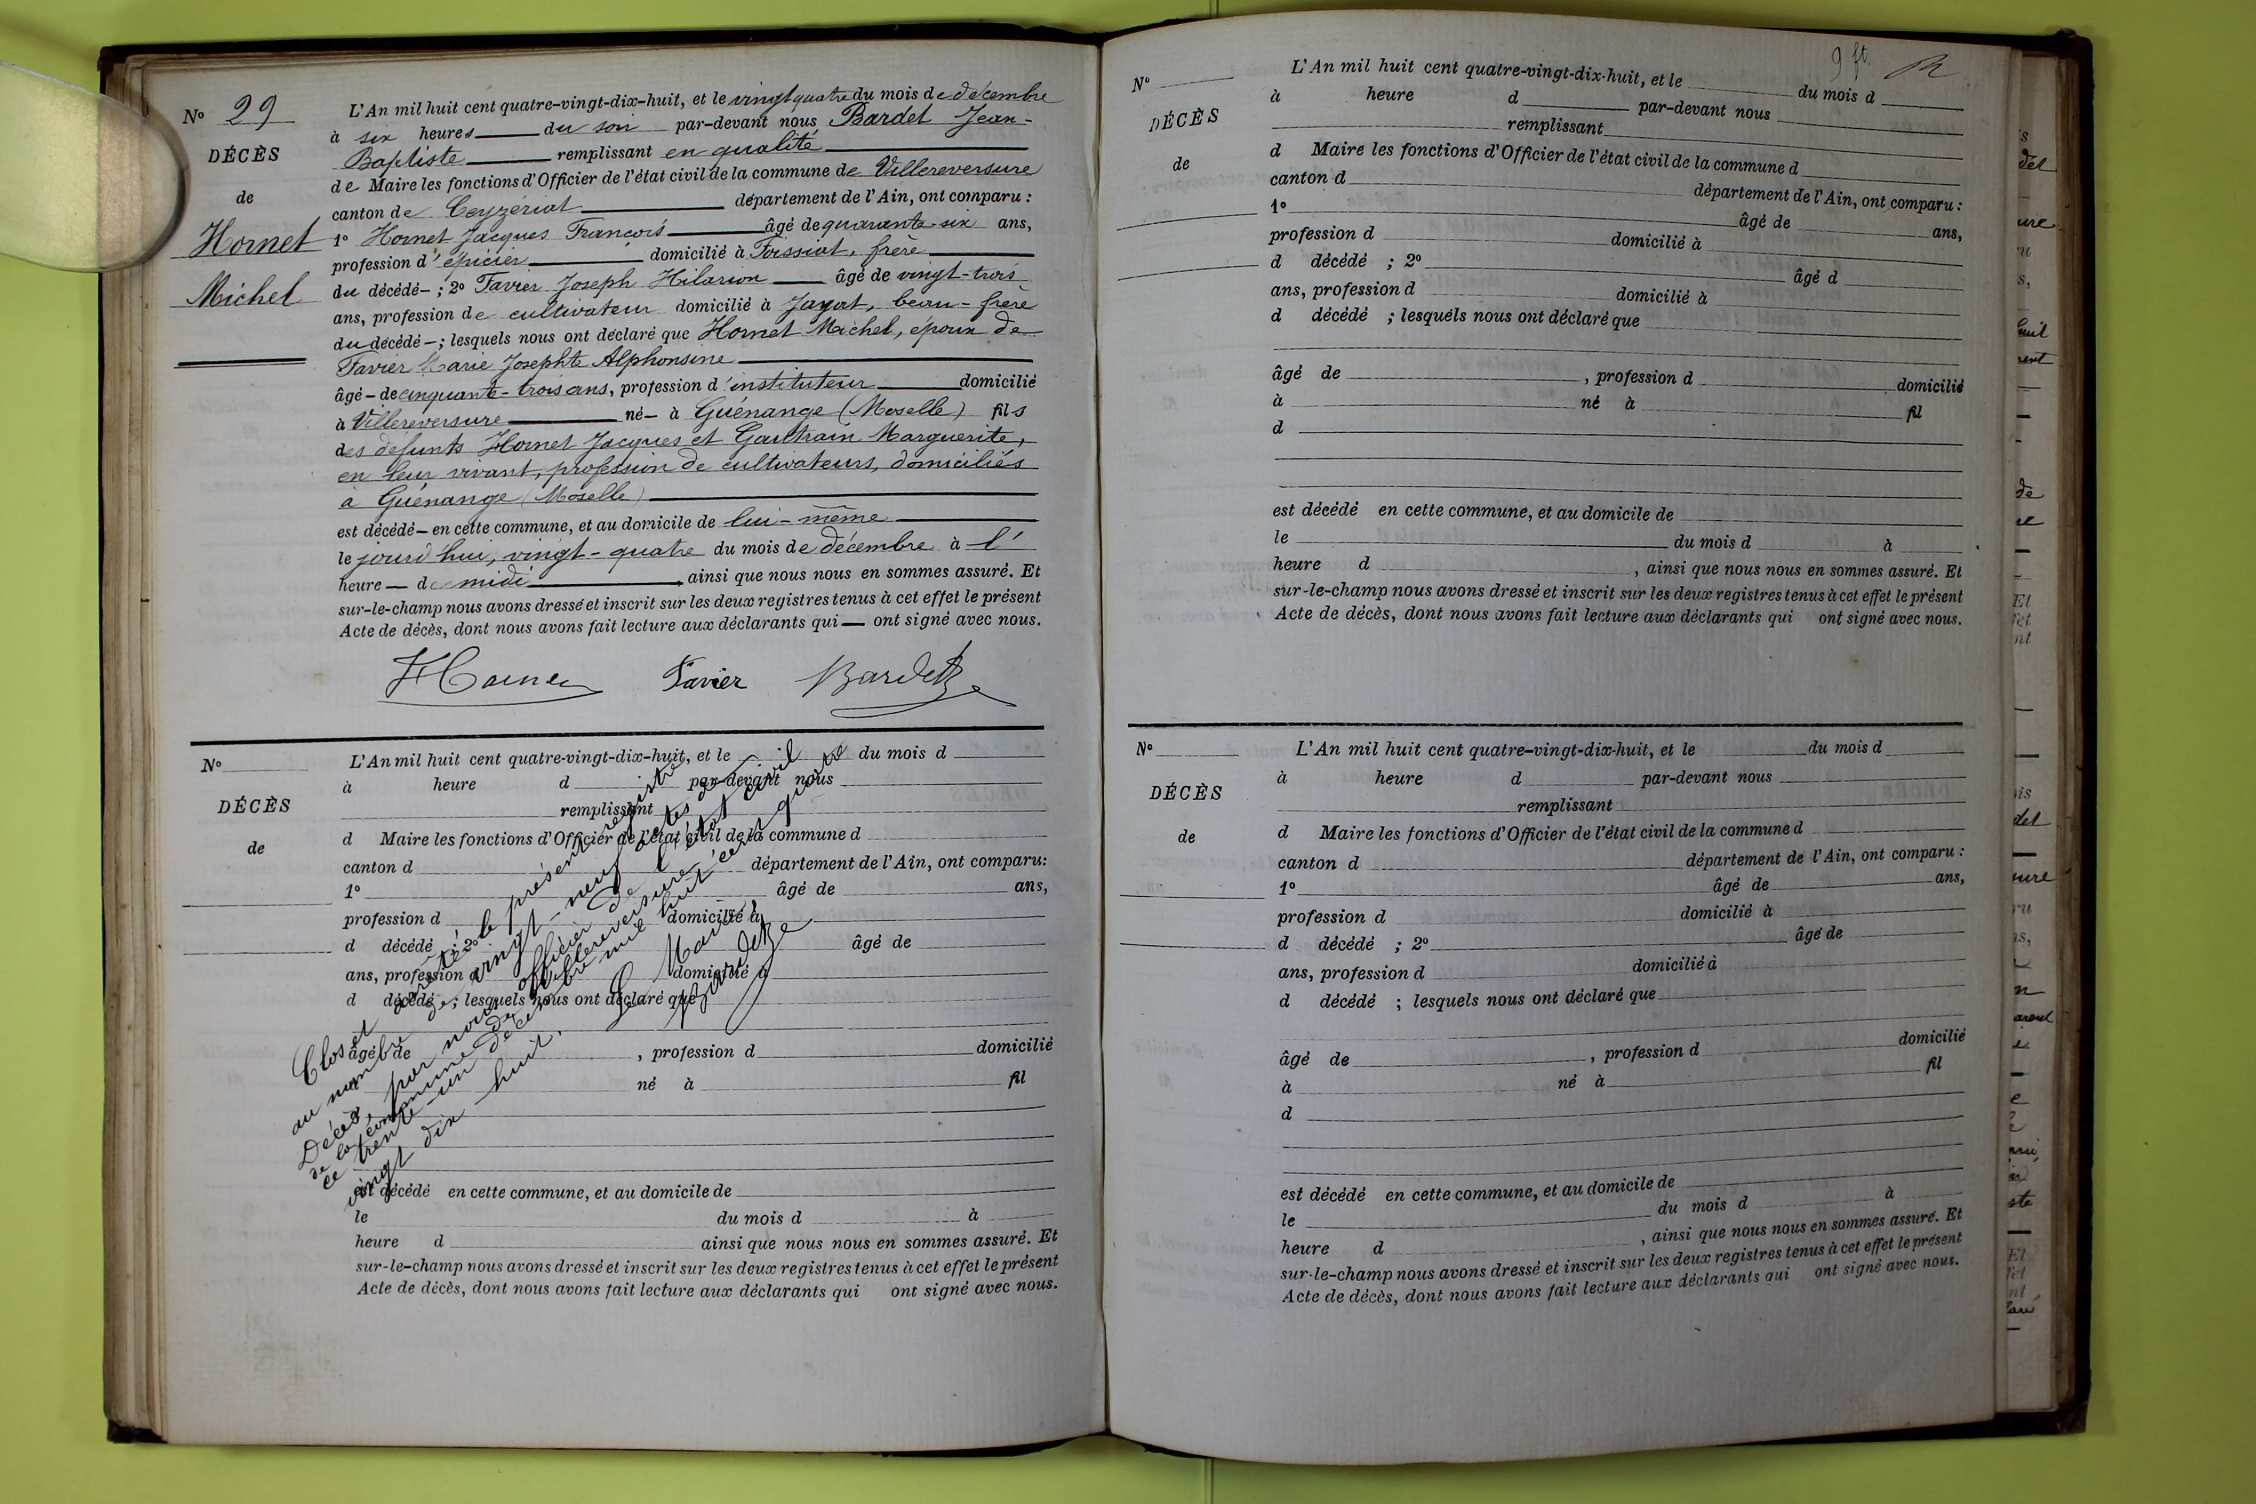 N° 29
DÉCÈS
de
Hornet
Michel
L'An mil huit cent quatre-vingt-dix-huit, et le vingt quatre du mois de décembre
à six heures du soir par-devant nous Bardet Jean-
Baptiste remplissant en qualité
de Maire les fonctions d'Officier de l'état civil de la commune de Villereversure
canton de Ceyzériat département de l'Ain, ont comparu :
1° Hornet Jacques François âgé de quarante-six ans,
profession d'épicier domicilié à Foissiat, frère
du décédé - ; 2° Favier Joseph Hilarion âgé de vingt-trois
ans, profession de cultivateur domicilié à Jayat, beau-frère
du décédé - ; lesquels nous ont déclaré que Hornet Michel, époux de
Favier Marie Josephte Alphonsine
âgé - de cinquante-trois ans, profession d'instituteur domicilié
à Villereversure né - à Guénange (Moselle) fils
des défunts Hornet Jacques et Gaultrain Marguerite,
en leur vivant, profession de cultivateurs, domiciliés
à Guénange (Moselle)
est décédé - en cette commune, et au domicile de lui-même
le jourd'hui, vingt-quatre du mois de décembre à l'
heure - de midi ainsi que nous nous en sommes assuré. Et
sur-le-champ nous avons dressé et inscrit sur les deux registres tenus à cet effet le présent
Acte de décès, dont nous avons fait lecture aux déclarants qui - ont signé avec nous.
Favier Bardet
N°
DÉCÈS
de
L'An mil huit cent quatre-vingt-dix-huit, et le du mois d
à heure d par-devant nous
remplissant
d Maire les fonctions d'Officier de l'état civil de la commune d
canton d département de l'Ain, ont comparu:
1° âgé de ans,
profession d domicilié à
d décédé ; 2° âgé de
ans, profession d domicilié à
d décédé ; lesquels nous ont déclaré que
âgé de , profession d domicilié
né à fil
est décédé en cette commune, et au domicile de
le du mois d à
heure d ainsi que nous nous en sommes assuré. Et
sur-le-champ nous avons dressé et inscrit sur les deux registres tenus à cet effet le présent
Acte de décès, dont nous avons fait lecture aux déclarants qui ont signé avec nous.
Clos et arrêté le présent registre
au nombre de vingt-neuf actes de
Décès, par nous officier de l'état civil
de la commune de Villereversure
ce trente-un décembre mil huit cent quatre
vingt dix huit.
Le Maire,
Bardet
9 ft.
N°
DÉCÈS
de
L'An mil huit cent quatre-vingt-dix-huit, et le du mois d
à heure d par-devant nous
remplissant
d Maire les fonctions d'Officier de l'état civil de la commune d
canton d département de l'Ain, ont comparu :
1° âgé de ans,
profession d domicilié à
d décédé ; 2° âgé d
ans, profession d domicilié à
d décédé ; lesquels nous ont déclaré que
âgé de , profession d domicilié
à né à fil
d
est décédé en cette commune, et au domicile de
le du mois d à
heure d , ainsi que nous nous en sommes assuré. Et
sur-le-champ nous avons dressé et inscrit sur les deux registres tenus à cet effet le présent
Acte de décès, dont nous avons fait lecture aux déclarants qui ont signé avec nous.
N°
DÉCÈS
de
L'An mil huit cent quatre-vingt-dix-huit, et le du mois d
à heure d par-devant nous
remplissant
d Maire les fonctions d'Officier de l'état civil de la commune d
canton d département de l'Ain, ont comparu :
1° âgé de ans,
profession d domicilié à
d décédé ; 2° âgé de
ans, profession d domicilié à
d décédé ; lesquels nous ont déclaré que
âgé de , profession d domicilié
à né à fil
d
est décédé en cette commune, et au domicile de
le du mois d à
heure d , ainsi que nous nous en sommes assuré. Et
sur-le-champ nous avons dressé et inscrit sur les deux registres tenus à cet effet le présent
Acte de décès, dont nous avons fait lecture aux déclarants qui ont signé avec nous.